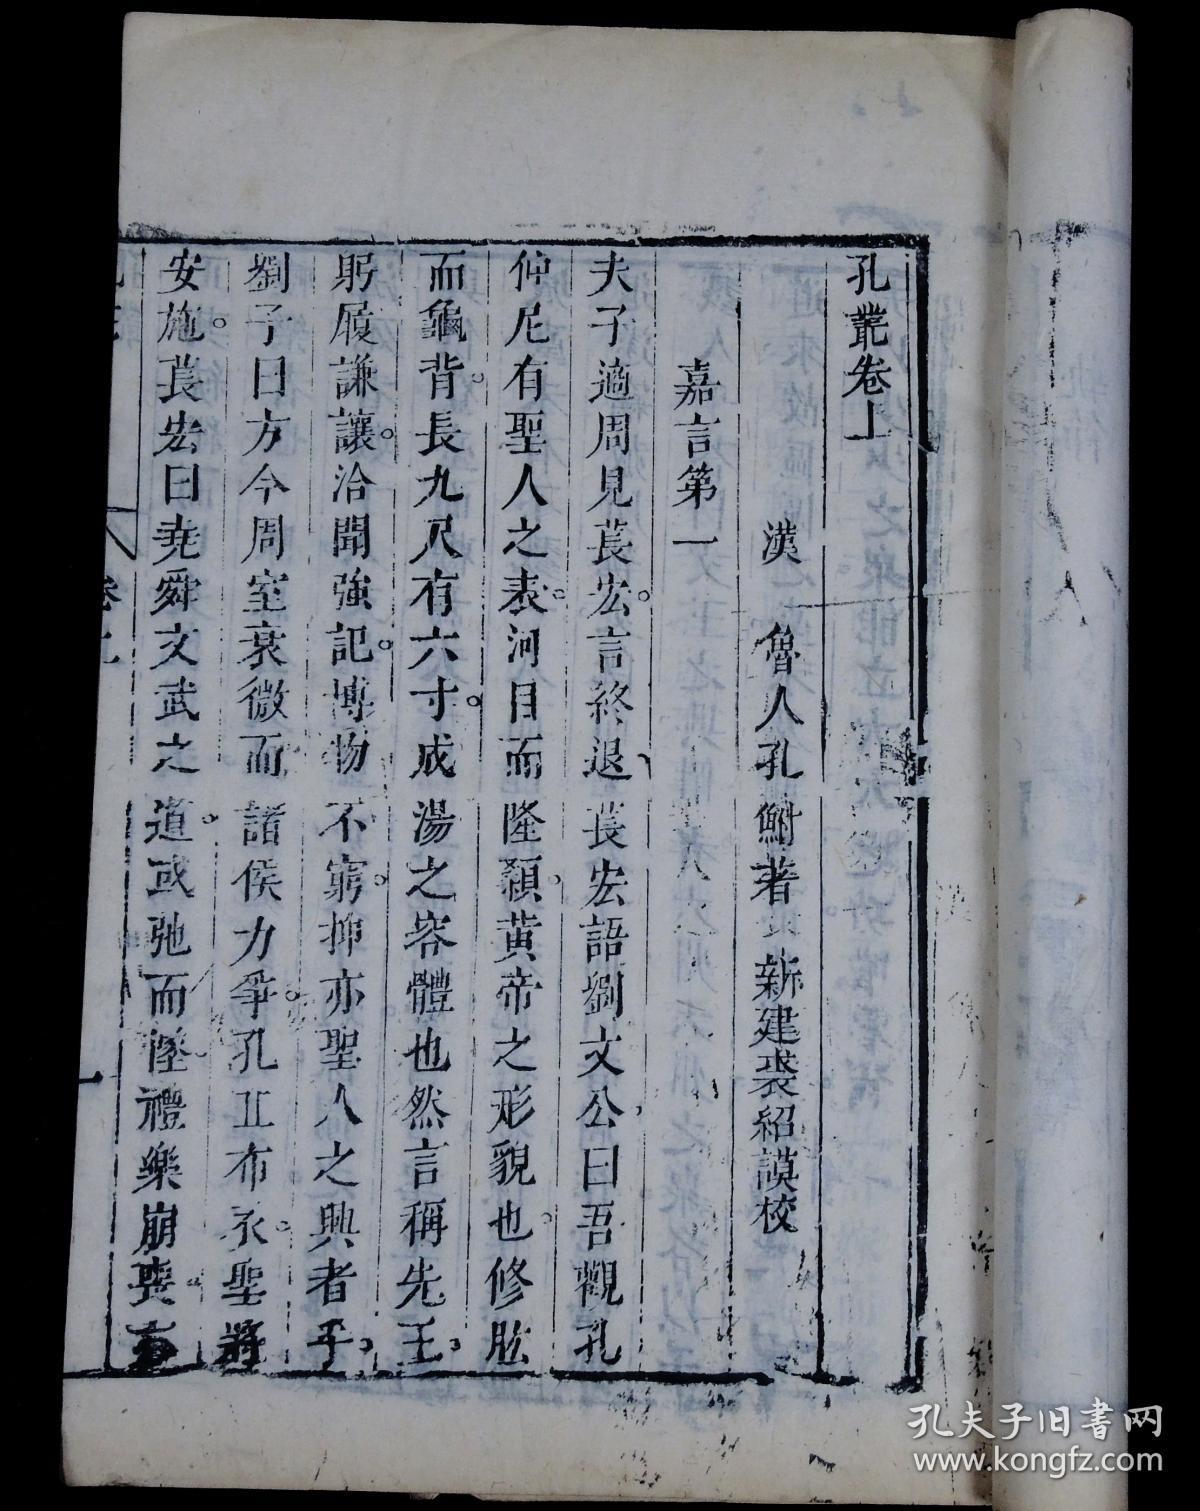 孔叢卷上
漢 魯人孔鮒著 新建裘紹謨校
嘉言第一
夫子適周見萇宏言終退萇宏語劉文公曰吾觀孔
仲尼有聖人之表河目而隆顙黃帝之形貌也修肱
而龜背長九尺有六寸成湯之容體也然言稱先王
躬履謙讓洽聞強記博物不窮抑亦聖人之興者乎
劉子曰方今周室衰微而諸侯力爭孔丘布衣聖將
安施萇宏曰堯舜文武之道或弛而墜禮樂崩喪
卷上
一
孔夫子旧书网
www.kongfz.com